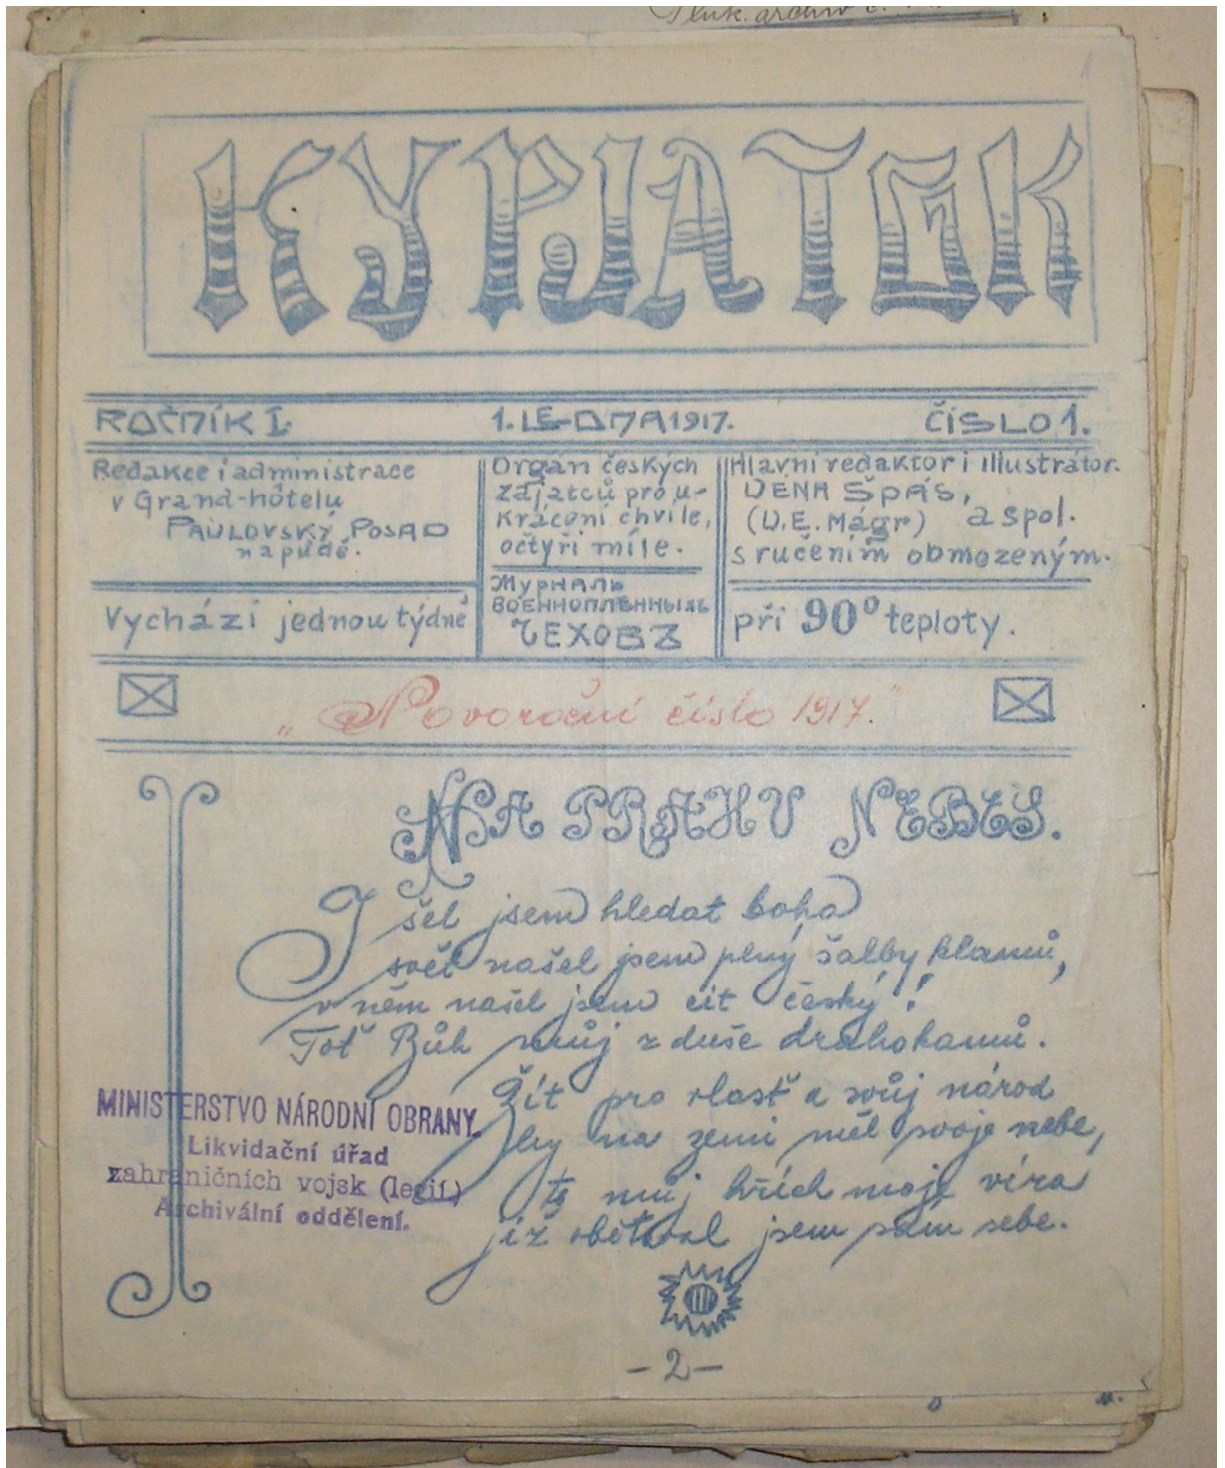 Pluk. archiv č.
KYPJATOK
ROČNÍK I. 1. LEDNA 1917. ČÍSLO 1.
Redakce i administrace
v Grand-hôtelu
PAVLOVSKÝ POSAD
na půdě.
Vychází jednou týdně
Orgán českých
zajatců pro u-
krácení chvíle,
očtyři míle.
Журналъ
военноплѣнныхъ
ЧЕХОВЪ
Hlavní redaktor i illustrátor.
VENA ŠPÁS,
(V.E. Mágr) a spol.
s ručením obmezeným.
při 90° teploty.
„Novoroční číslo 1917."
NA PRAHU NEBES.
I šel jsem hledat boha
svět našel jsem plný šalby klamů,
v něm našel jsem cit český!
Toť Bůh můj z duše drahokamů.
Žít pro vlasť a svůj národ
by na zemi měl svoje nebe,
tě můj hřích moje víra
jíž obětoval jsem sám sebe.
MINISTERSTVO NÁRODNÍ OBRANY.
Likvidační úřad
zahraničních vojsk (legií)
Archivální oddělení.
-2-